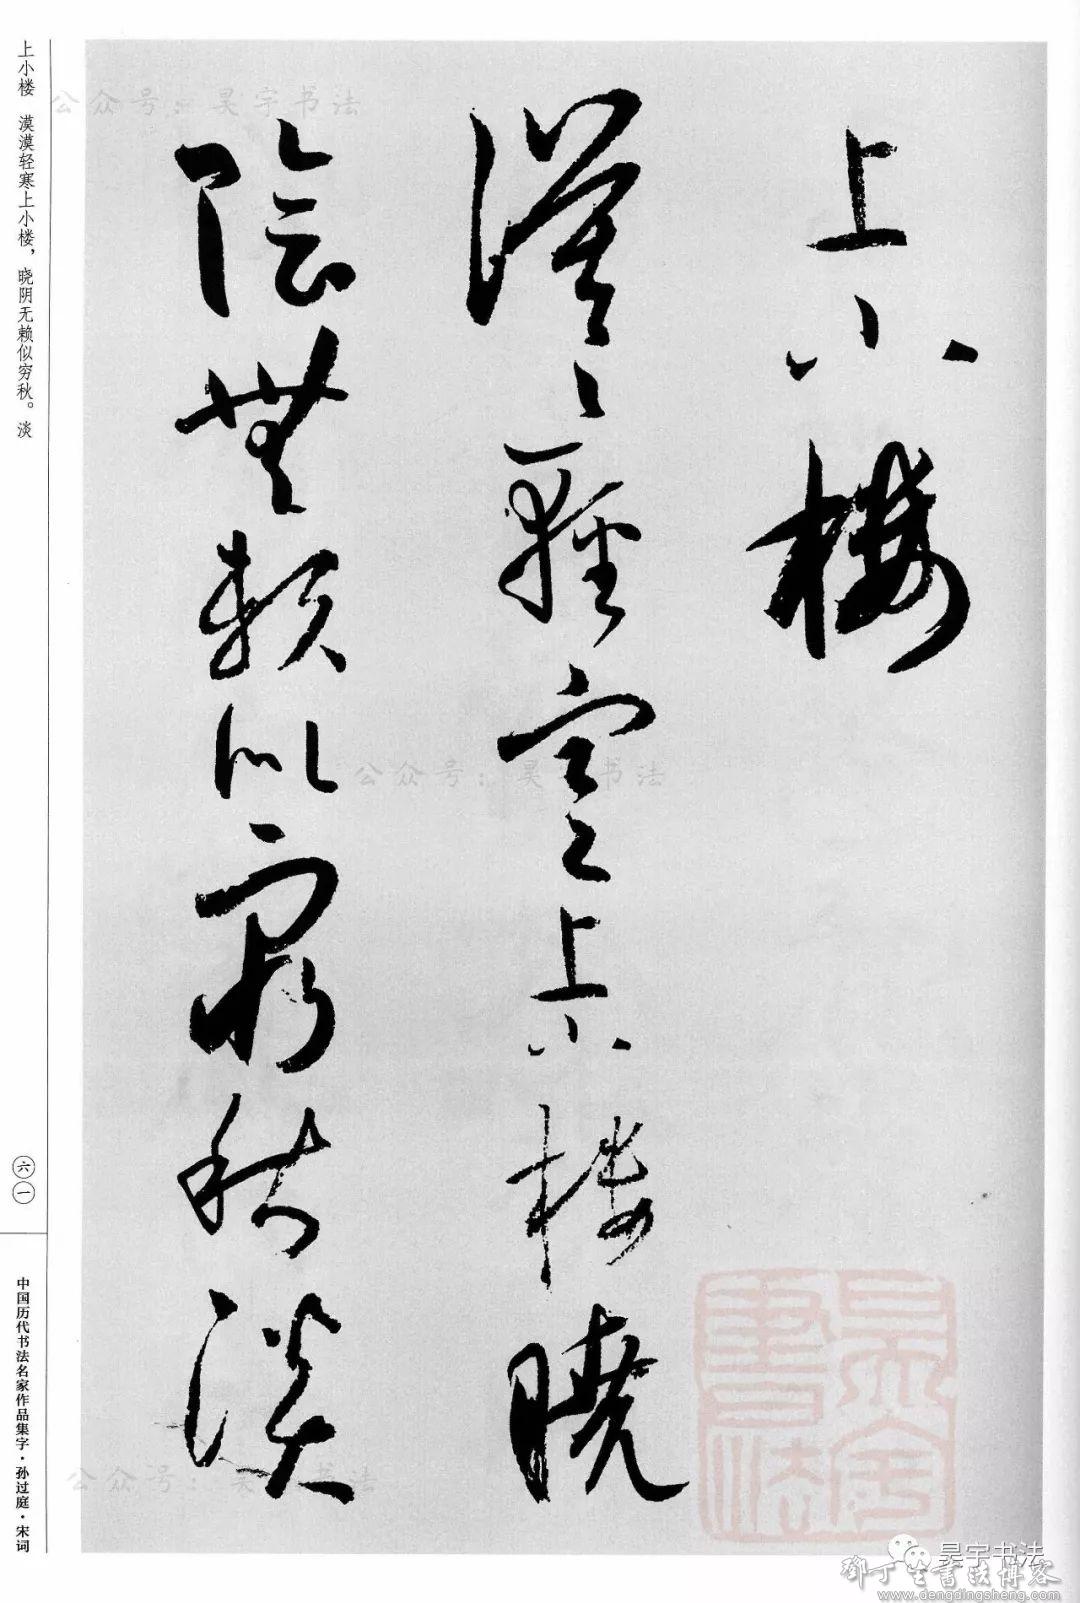 上小楼
漠〻轻寒上小楼晓
陰無赖似穷秋淡
上小楼　漠漠轻寒上小楼，晓阴无赖似穷秋。淡
六一
中国历代书法名家作品集字·孙过庭·宋词
公众号：昊宇书法
公众号：昊宇书法
公众号：昊宇书法
昊宇書法
昊宇书法
鄧丁生書法博客
www.dengdingsheng.com